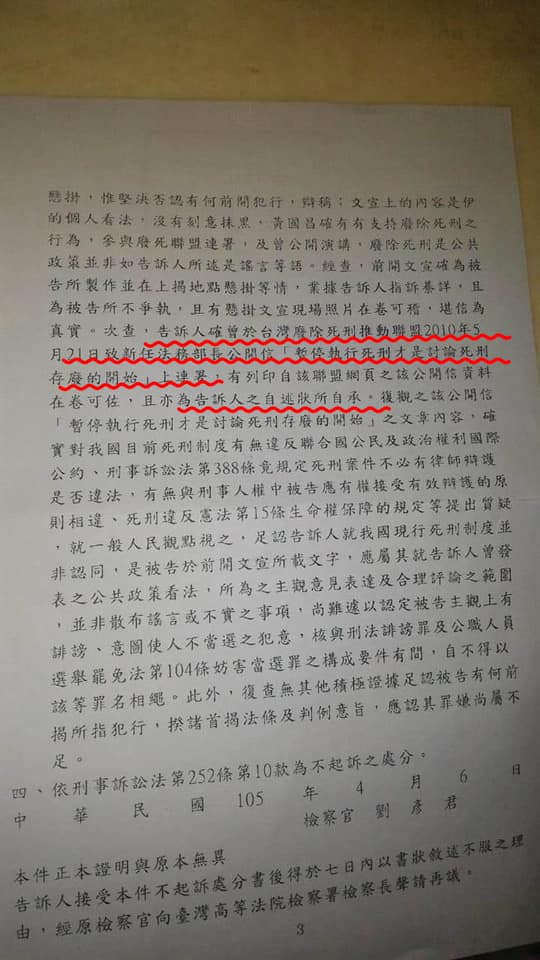 懸掛，惟堅決否認有何前開犯行，辯稱：文宣上的內容是伊
的個人看法，沒有刻意抹黑，黃國昌確有有支持廢除死刑之
行為，參與廢死聯盟連署，及曾公開演講，廢除死刑是公共
政策並非如告訴人所述是謠言等語。經查，前開文宣確為被
告所製作並在上揭地點懸掛等情，業據告訴人指訴綦詳，且
為被告所不爭執，且有懸掛文宣現場照片在卷可稽，堪信為
真實。次查，告訴人確曾於台灣廢除死刑推動聯盟2010年5
月21日致新任法務部長公開信「暫停執行死刑才是討論死刑
存廢的開始」上連署，有列印自該聯盟網頁之該公開信資料
在卷可佐，且亦為告訴人之自述狀所自承。復觀之該公開信
「暫停執行死刑才是討論死刑存廢的開始」之文章內容，確
實對我國目前死刑制度有無違反聯合國公民及政治權利國際
公約、刑事訴訟法第388條竟規定死刑案件不必有律師辯護
是否違法，有無與刑事人權中被告應有權接受有效辯護的原
則相違、死刑違反憲法第15條生命權保障的規定等提出質疑
，就一般人民觀點視之，足認告訴人就我國現行死刑制度並
非認同，是被告於前開文宣所載文字，應屬其就告訴人曾發
表之公共政策看法，所為之主觀意見表達及合理評論之範圍
，並非散布謠言或不實之事項，尚難遽以認定被告主觀上有
誹謗、意圖使人不當選之犯意，核與刑法誹謗罪及公職人員
選舉罷免法第104條妨害當選罪之構成要件有間，自不得以
該等罪名相繩。此外，復查無其他積極證據足認被告有何前
揭所指犯行，揆諸首揭法條及判例意旨，應認其罪嫌尚屬不
足。
四、依刑事訴訟法第252條第10款為不起訴之處分。
中華民國105年4月6日
檢察官劉彥君
本件正本證明與原本無異
告訴人接受本件不起訴處分書後得於七日內以書狀敘述不服之理
由，經原檢察官向臺灣高等法院檢察署檢察長聲請再議。
3